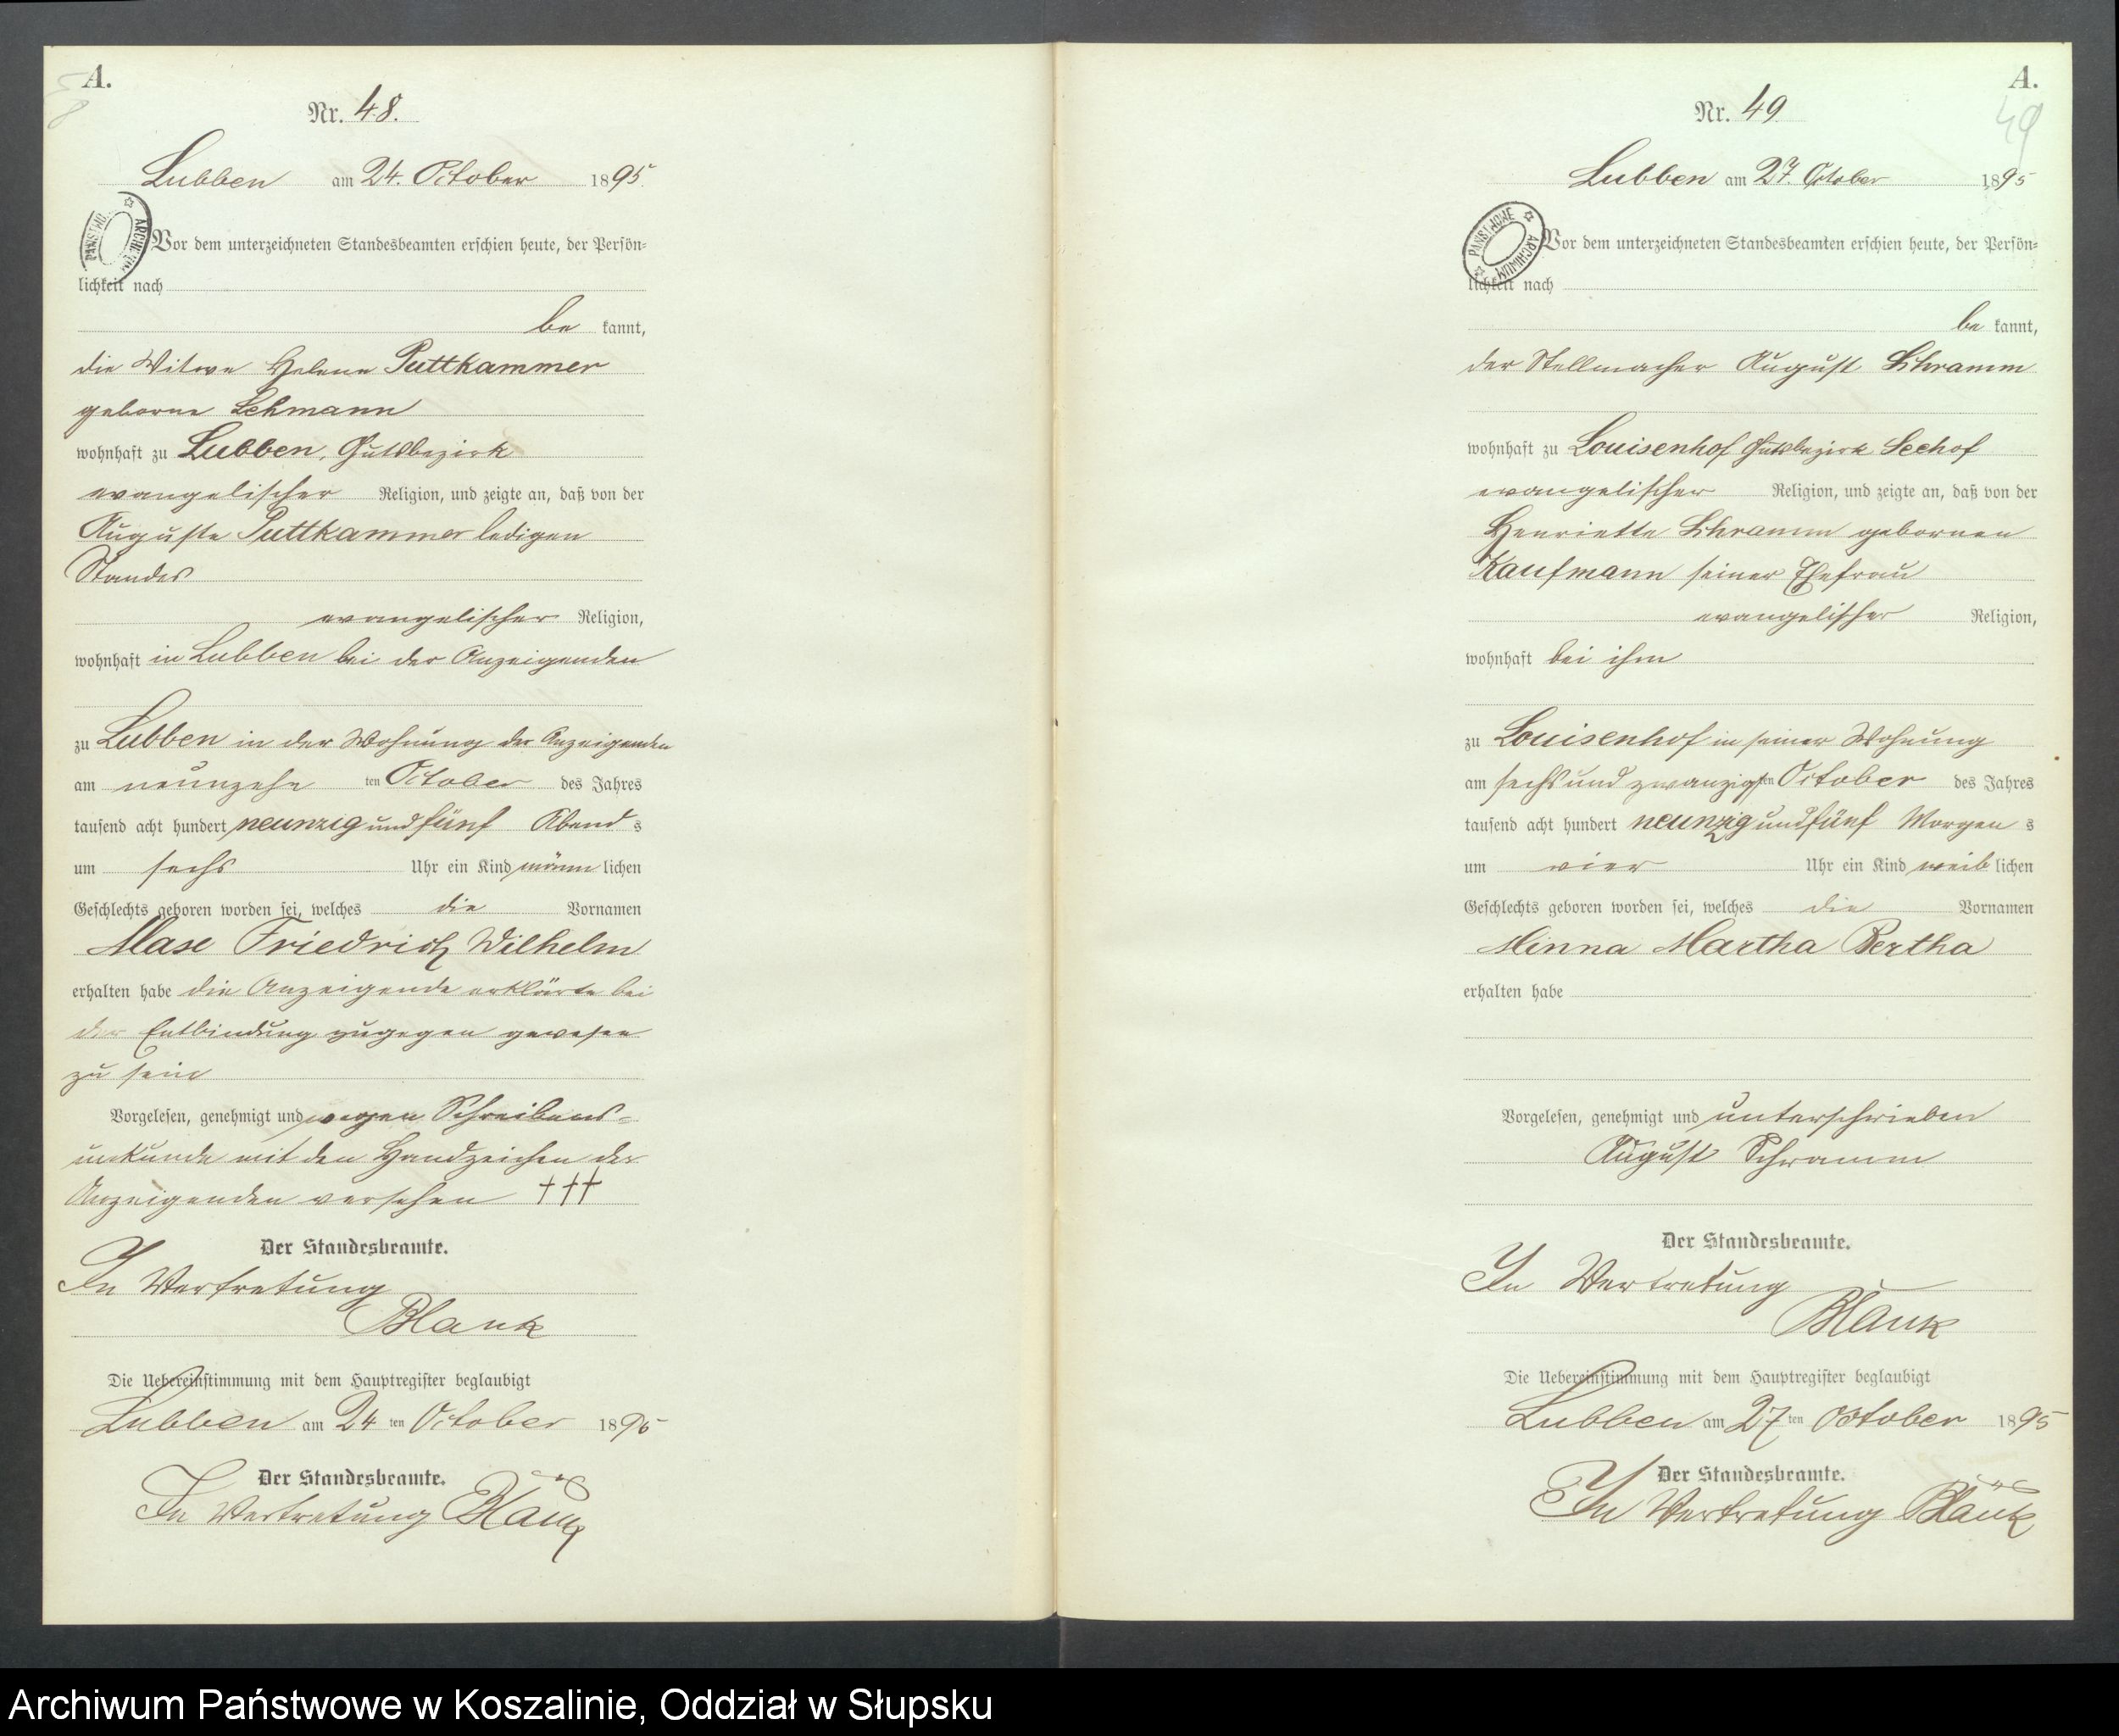 A.
Nr. 48.
Lubben am 24. October 1895
PAŃSTWO... ARCHIWUM
Vor dem unterzeichneten Standesbeamten erschien heute, der Persön=
lichkeit nach
be kannt,
die Witwe Helene Puttkammer
geborne Lehmann
wohnhaft zu Lubben, Gutsbezirk
evangelischer Religion, und zeigte an, daß von der
Auguste Puttkammer ledigen
Standes
evangelischer Religion,
wohnhaft in Lubben bei der Anzeigenden
zu Lubben in der Wohnung der Anzeigenden
am neunzehn ten October des Jahres
tausend acht hundert neunzig und fünf Abend s
um sechs Uhr ein Kind männ lichen
Geschlechts geboren worden sei, welches die Vornamen
Friedrich Wilhelm
erhalten habe die Anzeigende erklärte bei
der Entbindung zugegen gewesen
zu sein
Vorgelesen, genehmigt und wegen Schreibens=
unkunde mit den Handzeichen der
Anzeigenden versehen †††
Der Standesbeamte.
In Vertretung
Blank
Die Uebereinstimmung mit dem Hauptregister beglaubigt
Lubben am 24 ten October 1895
Der Standesbeamte.
In Vertretung Blank
A.
49
Nr. 49
Lubben am 27. October 1895
PAŃSTWOWE ARCHIWUM
Vor dem unterzeichneten Standesbeamten erschien heute, der Persön=
lichkeit nach
be kannt,
der Stellmacher August Schramm
wohnhaft zu Louisenhof Gutsbezirk Seehof
evangelischer Religion, und zeigte an, daß von der
Henriette Schramm gebornen
Kaufmann seiner Ehefrau
evangelischer Religion,
wohnhaft bei ihm
zu Louisenhof in seiner Wohnung
am sechs und zwanzigsten October des Jahres
tausend acht hundert neunzig und fünf Morgen s
um vier Uhr ein Kind weib lichen
Geschlechts geboren worden sei, welches die Vornamen
Minna Martha Bertha
erhalten habe
Vorgelesen, genehmigt und unterschrieben
August Schramm
Der Standesbeamte.
In Vertretung
Blank
Die Uebereinstimmung mit dem Hauptregister beglaubigt
Lubben am 27 ten October 1895
Der Standesbeamte.
In Vertretung Blank
Archiwum Państwowe w Koszalinie, Oddział w Słupsku